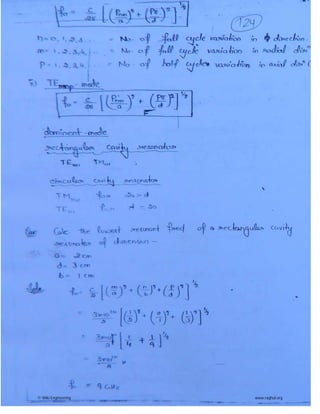 f₀ = c/2π [(Pnm/a)² + (Pπ/d)²]^1/2
124
n = 0, 1, 2, 3 ... = No of full cycle variation in ϕ direction
m = 1, 2, 3, 4 ... = No of full cycle variation in radial dirⁿ
P = 1, 2, 3, 4 ... = No of half cycle variation in axial dirⁿ
5) TE mode
f₀ = c/2π [(P'nm/a)² + (Pπ/d)²]^1/2
dominent mode
rectangular cavity resonator
TE TM
circular cavity resonator
TM for
TE for
Que Calc the lowest resonant freq of a rectangular cavity
resonator of dimension -
a = 2 cm
d = 3 cm
b = 1 cm
Soln f₀ = c/2 [(m/a)² + (n/b)² + (p/d)²]^1/2
= 3×10¹⁰/2 [(1/2)² + (0/1)² + (1/3)²]^1/2
= 3×10¹⁰/2 [1/4 + 1/9]^1/2
f₀ = 9 GHz
© Wiki Engineering
www.raghul.org